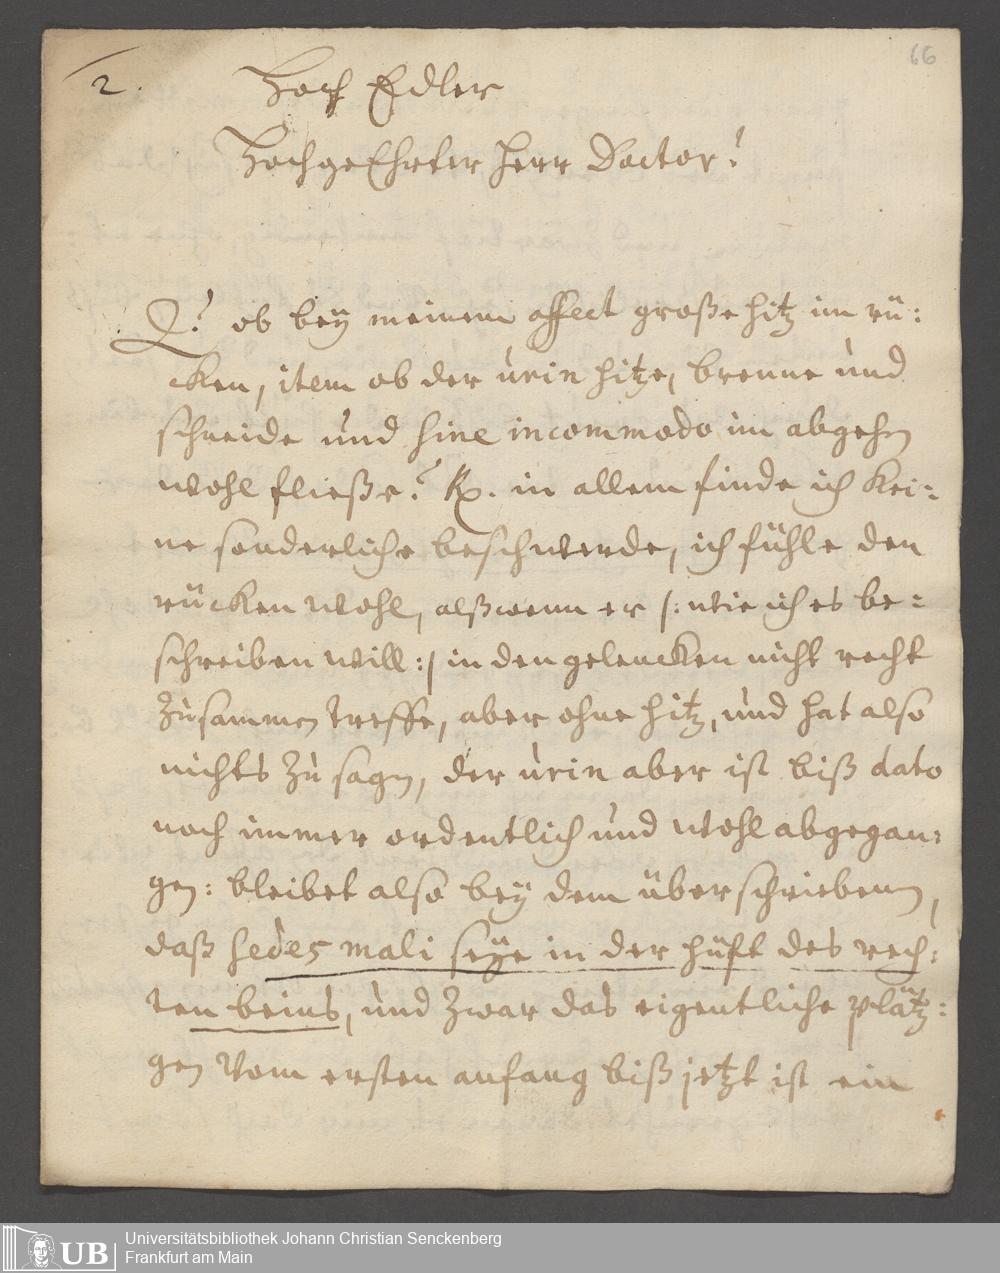 66
2.
Hoch Edler
HochgeEhrter Herr Doctor!
Q? ob beÿ meinem affect große hitz im rü:
cken, item ob der urin hitze, brenne und
schneide und sine incommodo im abgehn
wohl fließe? Rx. in allem finde ich kei:
ne sonderliche beschwerde, ich fühle den
rücken wohl, alßwenn er /: wie ich es be:
schreiben will :/ in den gelencken nicht recht
zusammen treffe, aber ohne hitz, und hat also
nichts zu sagn, der urin aber ist biß dato
noch immer ordentlich und wohl abgegan:
gen: bleibet also beÿ dem überschriebenen,
daß sedes mali seÿe in der hüfft des rech:
ten beins, und zwar das eigentliche plätz:
gen vom ersten anfang biß jetzt ist ein
UB
Universitätsbibliothek Johann Christian Senckenberg
Frankfurt am Main